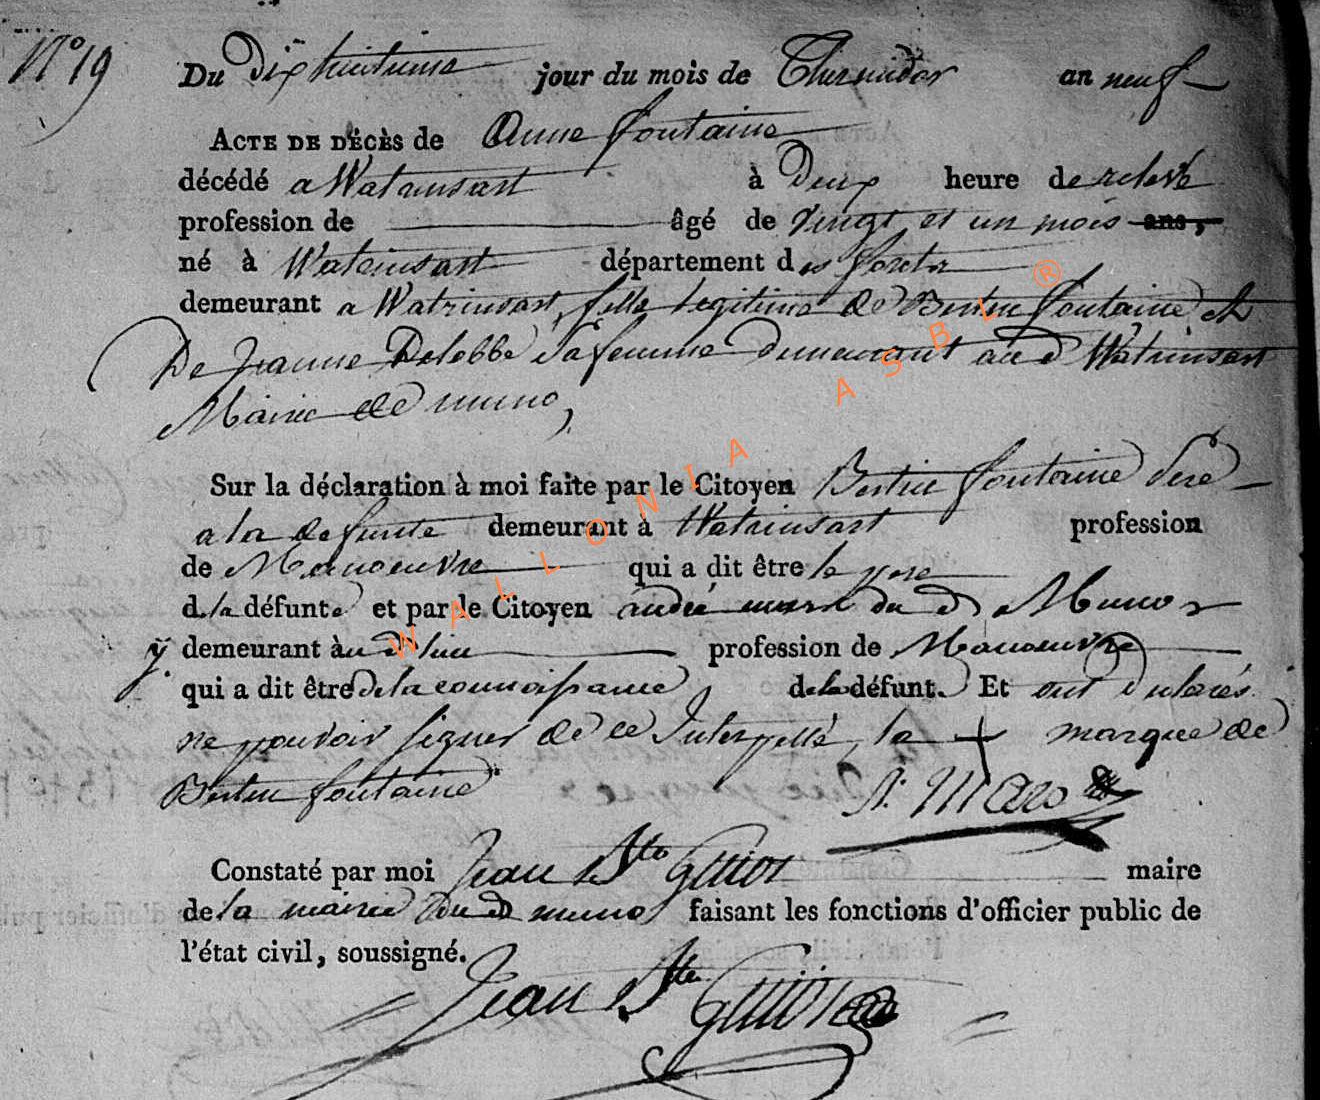 N° 19
Du dixhuitieme jour du mois de Thermidor an neuf
ACTE DE DÉCÈS de Anne fontaine
décédé a Watrinsart à Deux heure de relevé
profession de âgé de vingt et un mois ans,
né à Watrinsart département des forets
demeurant a Watrinsart, fille legitime de Bertin fontaine et
De Jeanne Delobbe sa femme demeurant au d Watrinsart
Mairie de muno,
Sur la déclaration à moi faite par le Citoyen Bertin fontaine Pere
a la defunte demeurant à Watrinsart profession
de Manoeuvre qui a dit être le pere
d la défunte et par le Citoyen du d Muno
y demeurant au d lieu profession de Manoeuvre
qui a dit être de la connoissance de la défunt. Et ont
ne pouvoir signer de ce Interpellé, la + marque de
Bertin fontaine
Constaté par moi Jean Bte Guiot maire
de la mairie du d muno faisant les fonctions d'officier public de
l'état civil, soussigné.
Jean Bte Guiot
WALLONIA ASBL ®